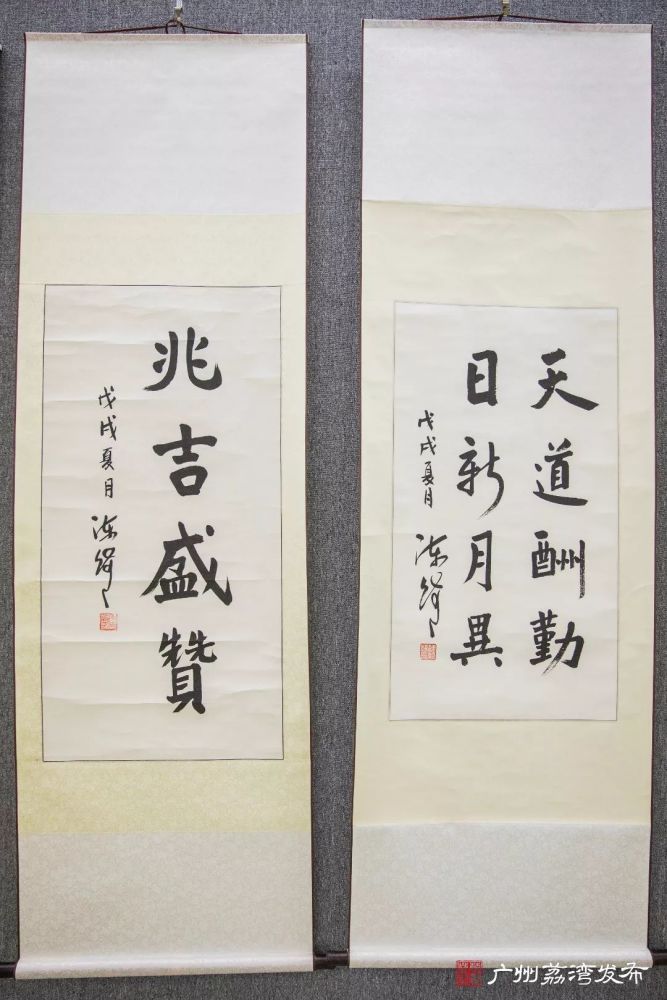 天道酬勤
日新月異
戊戌夏月
兆吉盛贊
戊戌夏月
广州荔湾发布